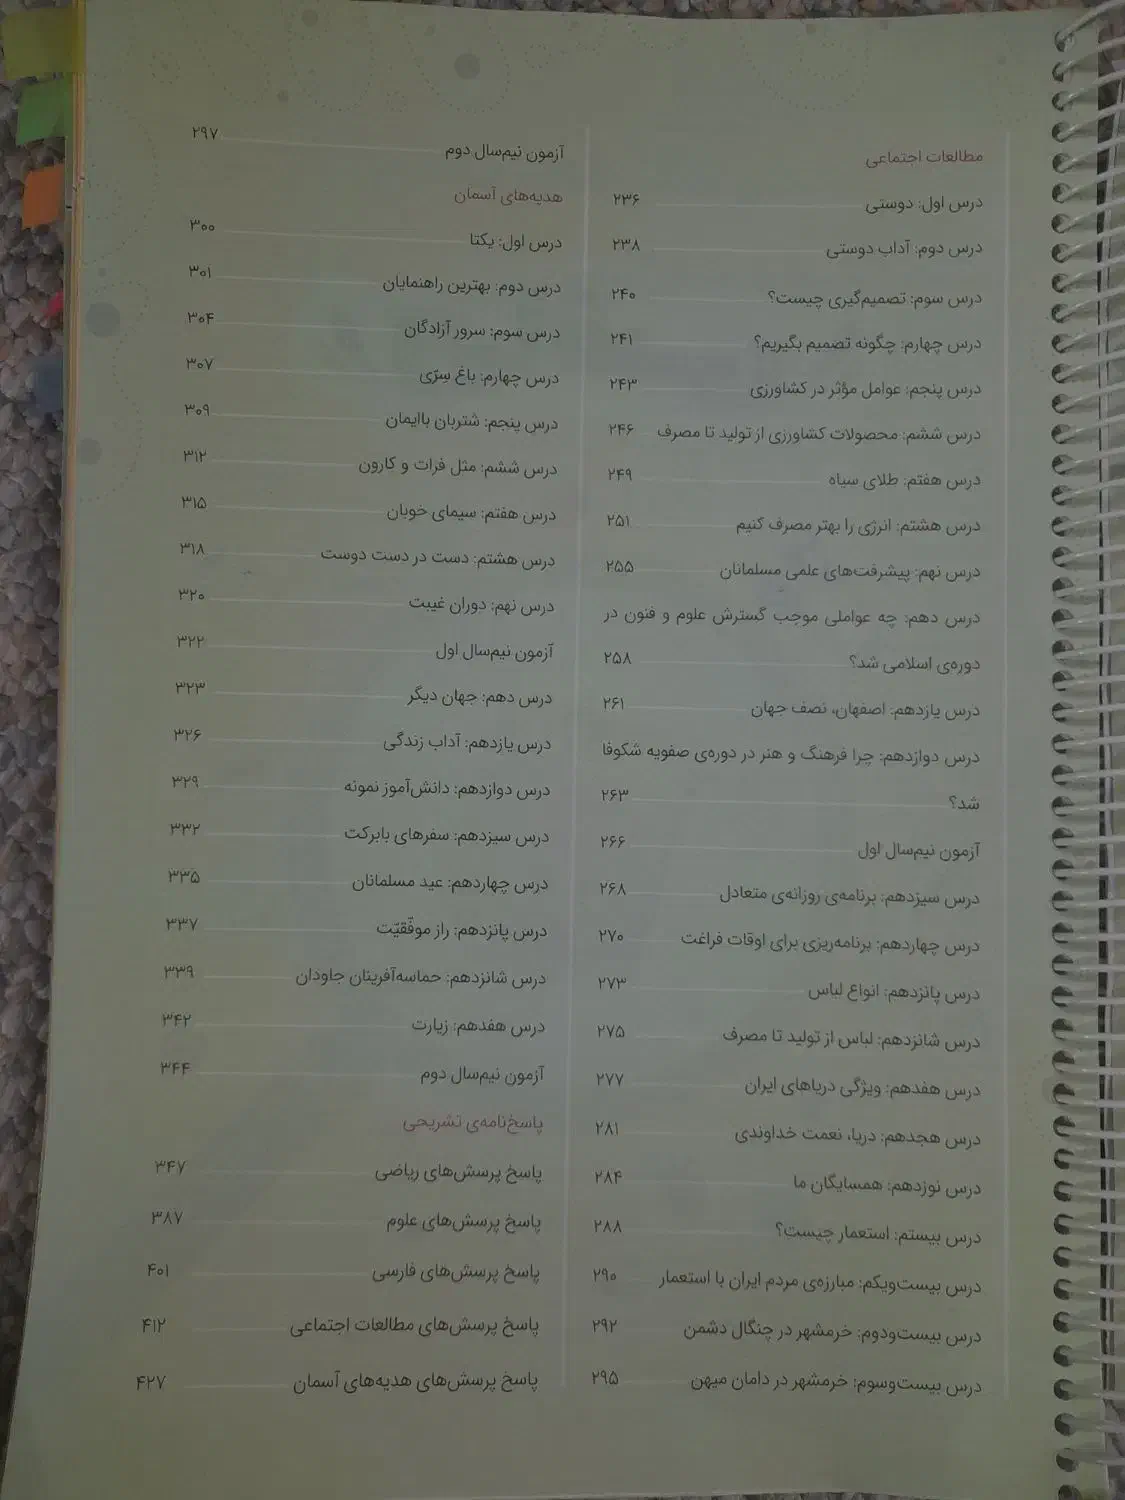 مطالعات اجتماعی
درس اول: دوستی ۲۳۶
درس دوم: آداب دوستی ۲۳۸
درس سوم: تصمیم‌گیری چیست؟ ۲۴۰
درس چهارم: چگونه تصمیم بگیریم؟ ۲۴۱
درس پنجم: عوامل مؤثر در کشاورزی ۲۴۳
درس ششم: محصولات کشاورزی از تولید تا مصرف ۲۴۶
درس هفتم: طلای سیاه ۲۴۹
درس هشتم: انرژی را بهتر مصرف کنیم ۲۵۱
درس نهم: پیشرفت‌های علمی مسلمانان ۲۵۵
درس دهم: چه عواملی موجب گسترش علوم و فنون در
دوره‌ی اسلامی شد؟ ۲۵۸
درس یازدهم: اصفهان، نصف جهان ۲۶۱
درس دوازدهم: چرا فرهنگ و هنر در دوره‌ی صفویه شکوفا
شد؟ ۲۶۳
آزمون نیم‌سال اول ۲۶۶
درس سیزدهم: برنامه‌ی روزانه‌ی متعادل ۲۶۸
درس چهاردهم: برنامه‌ریزی برای اوقات فراغت ۲۷۰
درس پانزدهم: انواع لباس ۲۷۳
درس شانزدهم: لباس از تولید تا مصرف ۲۷۵
درس هفدهم: ویژگی دریاهای ایران ۲۷۷
درس هجدهم: دریا، نعمت خداوندی ۲۸۱
درس نوزدهم: همسایگان ما ۲۸۴
درس بیستم: استعمار چیست؟ ۲۸۸
درس بیست‌ویکم: مبارزه‌ی مردم ایران با استعمار ۲۹۰
درس بیست‌ودوم: خرمشهر در چنگال دشمن ۲۹۲
درس بیست‌وسوم: خرمشهر در دامان میهن ۲۹۵
آزمون نیم‌سال دوم ۲۹۷
هدیه‌های آسمان
درس اول: یکتا ۳۰۰
درس دوم: بهترین راهنمایان ۳۰۱
درس سوم: سرور آزادگان ۳۰۴
درس چهارم: باغ سِرّی ۳۰۷
درس پنجم: شتربان باایمان ۳۰۹
درس ششم: مثل فرات و کارون ۳۱۲
درس هفتم: سیمای خوبان ۳۱۵
درس هشتم: دست در دست دوست ۳۱۸
درس نهم: دوران غیبت ۳۲۰
آزمون نیم‌سال اول ۳۲۲
درس دهم: جهان دیگر ۳۲۳
درس یازدهم: آداب زندگی ۳۲۶
درس دوازدهم: دانش‌آموز نمونه ۳۲۹
درس سیزدهم: سفرهای بابرکت ۳۳۲
درس چهاردهم: عید مسلمانان ۳۳۵
درس پانزدهم: راز موفّقیّت ۳۳۷
درس شانزدهم: حماسه‌آفرینان جاودان ۳۳۹
درس هفدهم: زیارت ۳۴۲
آزمون نیم‌سال دوم ۳۴۴
پاسخ‌نامه‌ی تشریحی
پاسخ پرسش‌های ریاضی ۳۴۷
پاسخ پرسش‌های علوم ۳۸۷
پاسخ پرسش‌های فارسی ۴۰۱
پاسخ پرسش‌های مطالعات اجتماعی ۴۱۲
پاسخ پرسش‌های هدیه‌های آسمان ۴۲۷